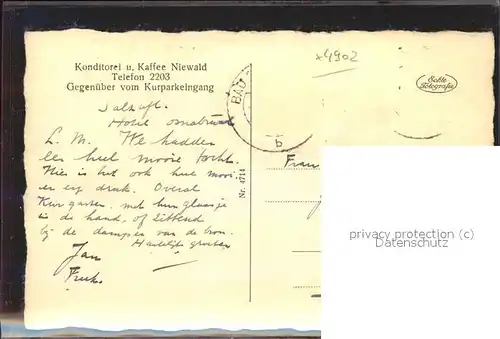 Konditorei u. Kaffee Niewald
Telefon 2203
Gegenüber vom Kurparkeingang
x4902
Echte Fotografie
BAD
b
Salzufl.
Hotel Osnabrück
L. M. We hadden
een heel mooie tocht.
Hier is het ook heel mooi
en erg druk. Overal
Kurgasten met hun glaasje
in de hand, of zittend
bij de dampen van de bron.
Hartelijke groeten
Jan
Nr. 4714
Frau
privacy protection (c)
Datenschutz